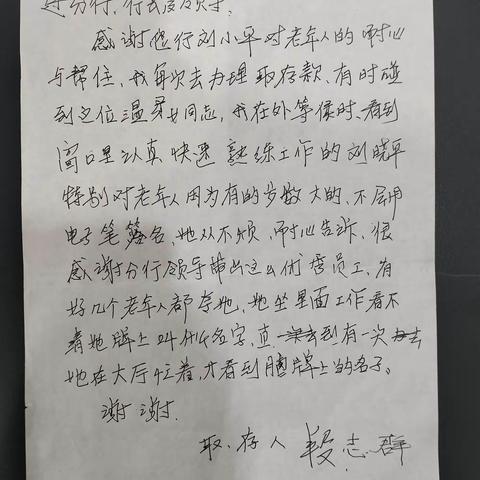 感谢您行刘小平对老年人的耐心
与帮住、我每次去办理取存款、有时碰
到这位温柔女同志，我在外等候时、看到
窗口里认真快速熟练工作的刘晓平
特别对老年人因为有的岁数大的、不会用
电子笔签名、她从不烦、耐心告诉、很
感谢分行领导带出这么优秀员工、有
好几个老年人都夸她、她坐里面工作看不
着她牌上叫什么名字，直到有一次去
她在大厅忙着，才看到胸牌上的名子。
谢谢.
取、存人 段志群